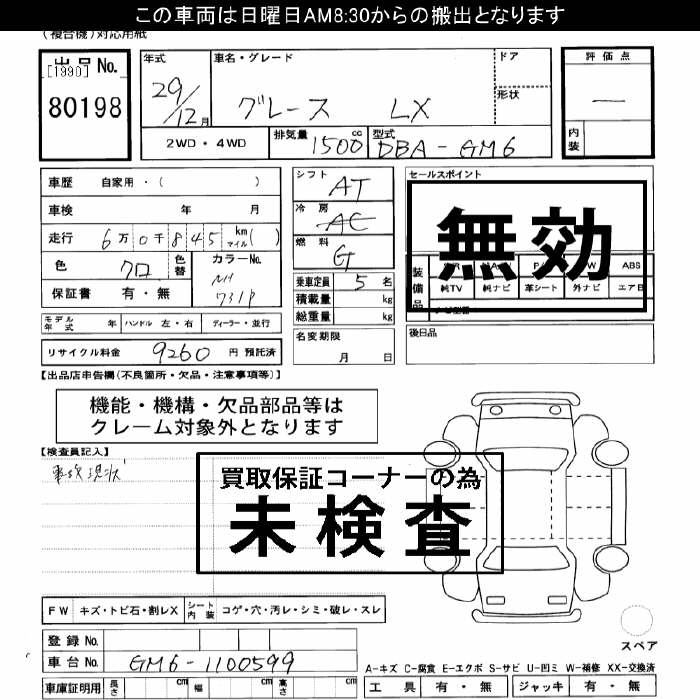 この車両は日曜日AM8:30からの搬出となります
(複合機)対応用紙
出品No.
[1990]
80198
年式
29/12月
車名・グレード
グレース LX
ドア
形状
評価点
—
内装
2WD・4WD
排気量 1500 cc
型式 DBA-GM6
車歴 自家用・( )
車検 年 月
走行 6万0千845 km マイル ( )
色 クロ
色替
カラーNo. NH731P
保証書 有・無
シフト AT
冷房 AC
燃料 G
乗車定員 5名
積載量 kg
総重量 kg
セールスポイント
無効
装備品
ABS
純TV 純ナビ 革シート 外ナビ エアB
モデル年式 年 ハンドル 左・右 ディーラー・並行
名変期限
月 日
後日品
リサイクル料金 9260 円 預託済
【出品店申告欄(不良箇所・欠品・注意事項等)】
機能・機構・欠品部品等は
クレーム対象外となります
【検査員記入】
事故現状
買取保証コーナーの為
未検査
FW キズ・トビ石・割レX シート内装 コゲ・穴・汚レ・シミ・破レ・スレ
登録No.
車台No. GM6-1100599
車庫証明用 長さ cm 幅 cm 高さ cm
スペア
A-キズ C-腐食 E-エクボ S-サビ U-凹ミ W-補修 XX-交換済
工具 有・無 ジャッキ 有・無